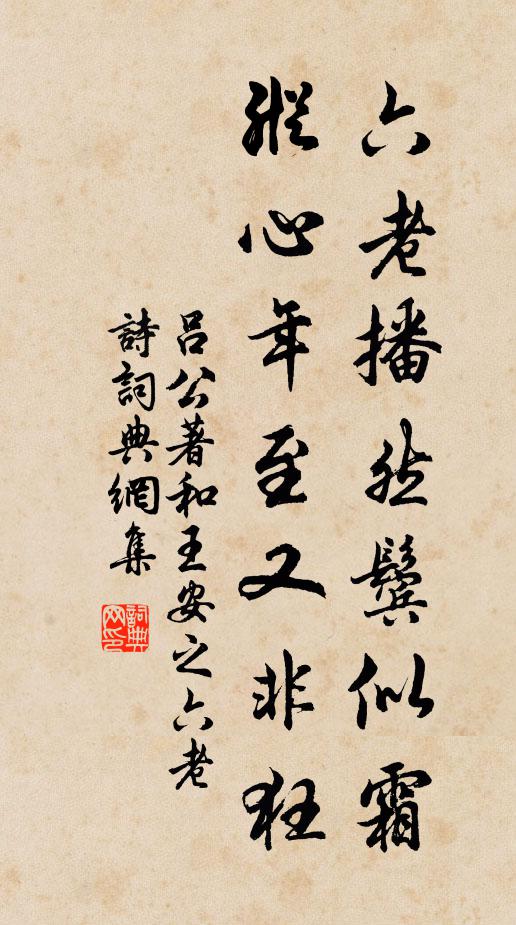 六老播然鬓似霜
縱心年至又非狂
呂公著和王安之六老
詩詞典網集
詞典网印